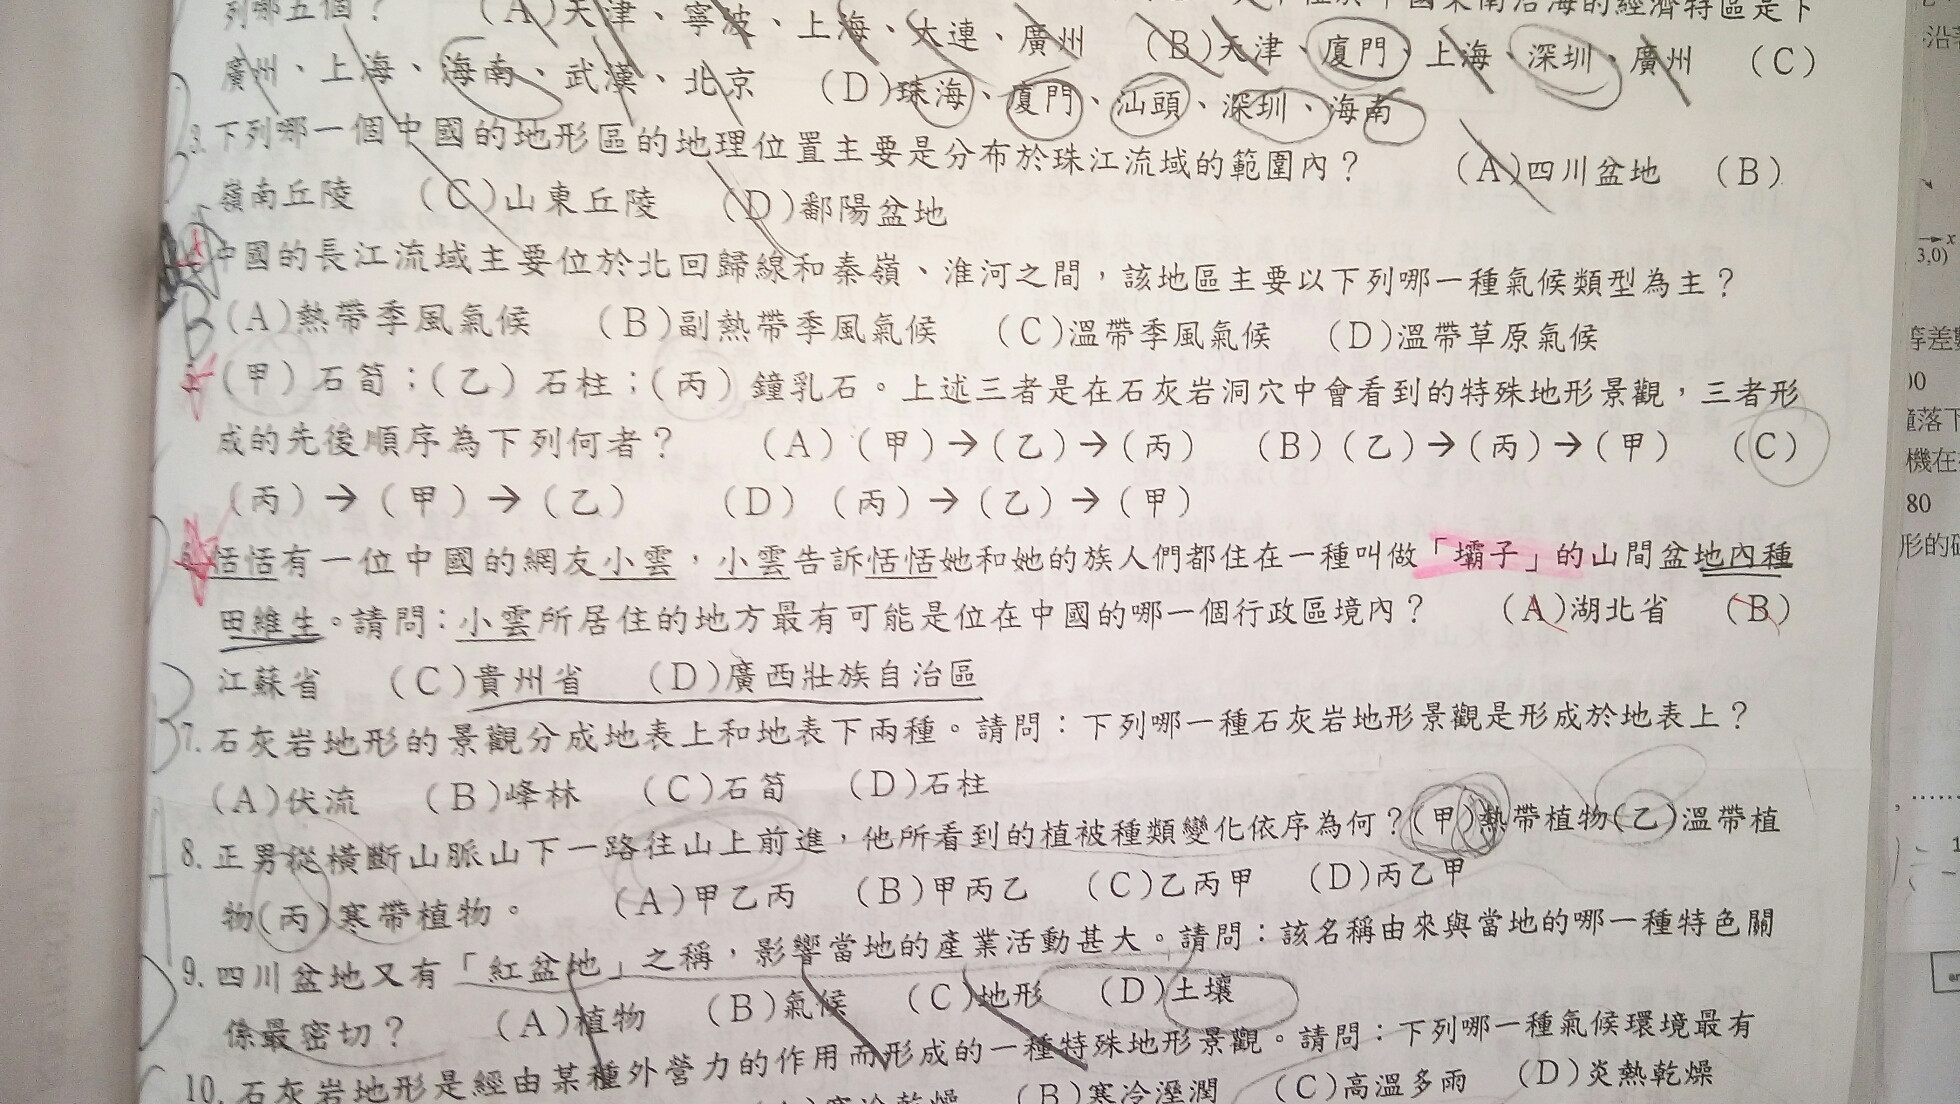 列哪五個？　(A)天津、寧波、上海、大連、廣州　(B)天津、廈門、上海、深圳、廣州　(C)
廣州、上海、海南、武漢、北京　(D)珠海、廈門、汕頭、深圳、海南
3.下列哪一個中國的地形區的地理位置主要是分布於珠江流域的範圍內？　(A)四川盆地　(B)
嶺南丘陵　(C)山東丘陵　(D)鄱陽盆地
中國的長江流域主要位於北回歸線和秦嶺、淮河之間，該地區主要以下列哪一種氣候類型為主？
B (A)熱帶季風氣候　(B)副熱帶季風氣候　(C)溫帶季風氣候　(D)溫帶草原氣候
(甲)石筍；(乙)石柱；(丙)鐘乳石。上述三者是在石灰岩洞穴中會看到的特殊地形景觀，三者形
成的先後順序為下列何者？　(A)(甲)→(乙)→(丙)　(B)(乙)→(丙)→(甲)　(C)
(丙)→(甲)→(乙)　(D)(丙)→(乙)→(甲)
恬恬有一位中國的網友小雲，小雲告訴恬恬她和她的族人們都住在一種叫做「壩子」的山間盆地內種
田維生。請問：小雲所居住的地方最有可能是位在中國的哪一個行政區境內？　(A)湖北省　(B)
江蘇省　(C)貴州省　(D)廣西壯族自治區
B 7.石灰岩地形的景觀分成地表上和地表下兩種。請問：下列哪一種石灰岩地形景觀是形成於地表上？
(A)伏流　(B)峰林　(C)石筍　(D)石柱
8.正男從橫斷山脈山下一路往山上前進，他所看到的植被種類變化依序為何？(甲)熱帶植物(乙)溫帶植
物(丙)寒帶植物。　(A)甲乙丙　(B)甲丙乙　(C)乙丙甲　(D)丙乙甲
9.四川盆地又有「紅盆地」之稱，影響當地的產業活動甚大。請問：該名稱由來與當地的哪一種特色關
係最密切？　(A)植物　(B)氣候　(C)地形　(D)土壤
10.石灰岩地形是經由某種外營力的作用而形成的一種特殊地形景觀。請問：下列哪一種氣候環境最有
(B)寒冷溼潤　(C)高溫多雨　(D)炎熱乾燥
x
3,0)
等差
00
落下
機在
80
形的